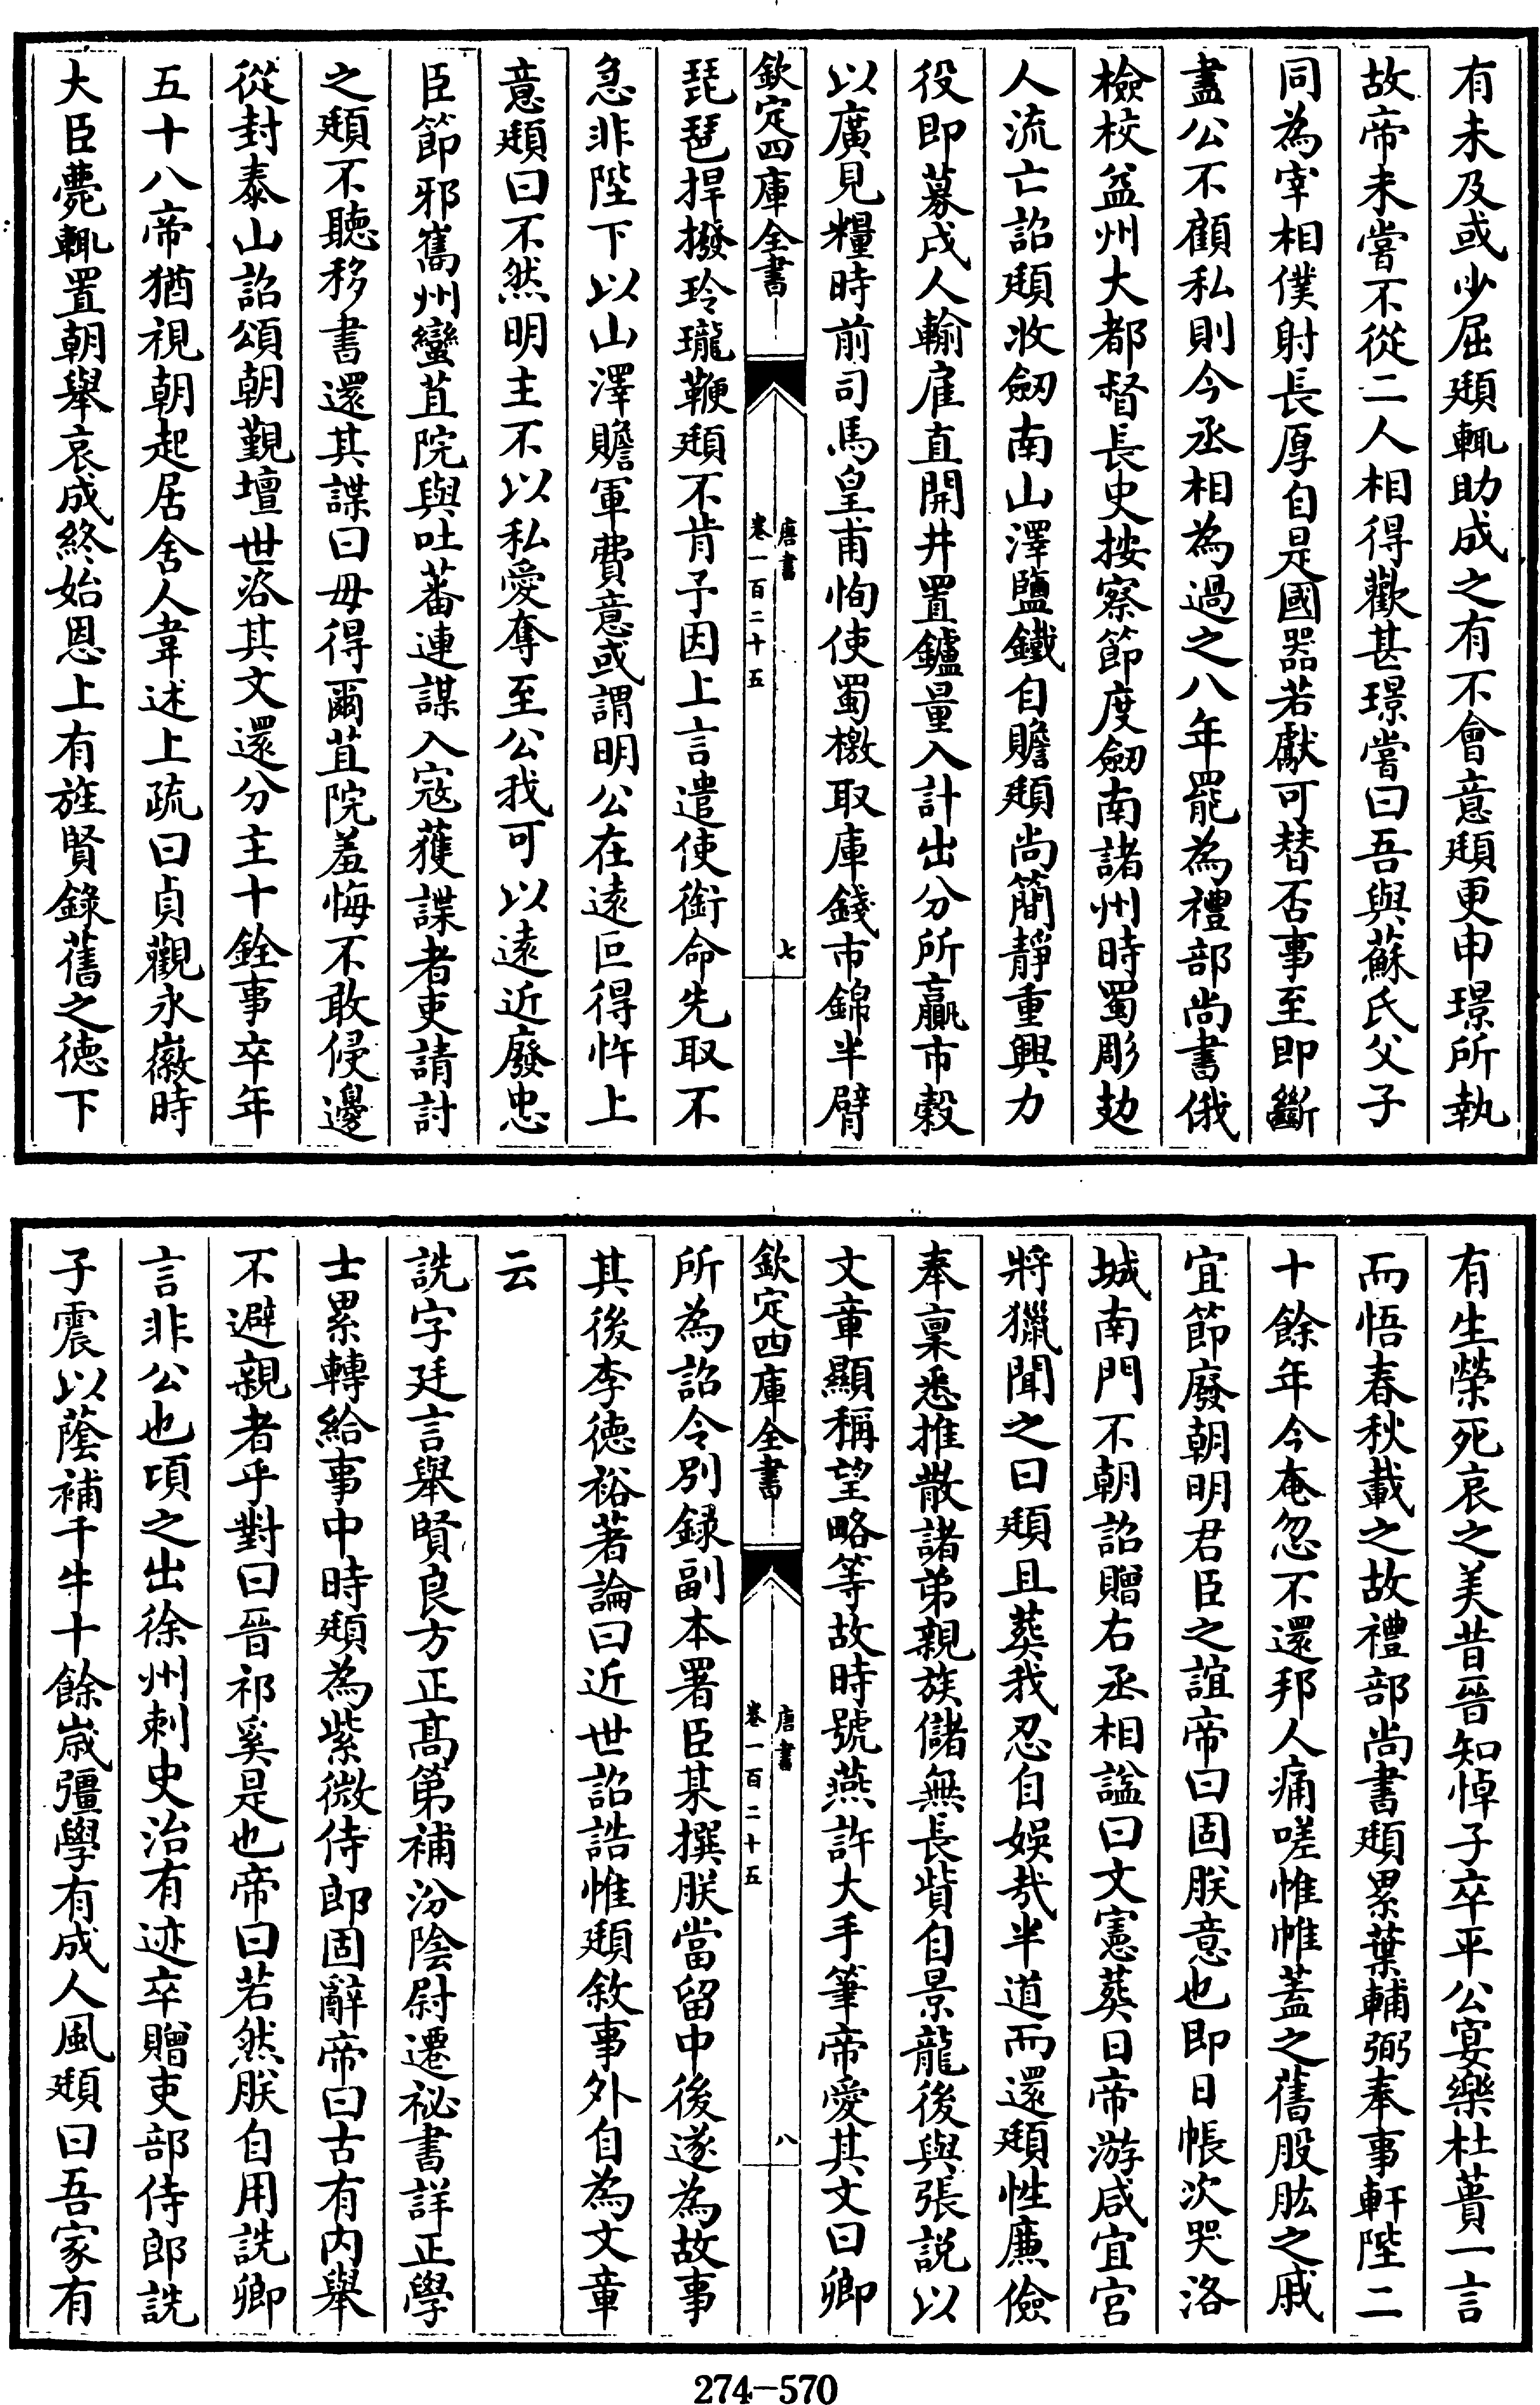 有未及或少屈頲輒助成之有不會意頲更申璟所執
故帝未嘗不從二人相得歡甚璟嘗曰吾與蘇氏父子
同為宰相僕射長厚自是國器若獻可替否事至即斷
盡公不顧私則今丞相為過之八年罷為禮部尚書俄
檢校益州大都督長史按察節度劒南諸州時蜀彫劫
人流亡詔頲收劒南山澤鹽鐵自贍頲尚簡靜重興力
役即募戍人輸雇直開井置鑪量入計出分所贏市穀
以廣見糧時前司馬皇甫恂使蜀檄取庫錢市錦半臂
欽定四庫全書
唐書
卷一百二十五
七
琵琶捍撥玲瓏鞭頲不肯予因上言遣使銜命先取不
急非陛下以山澤贍軍費意或謂明公在遠叵得忤上
意頲曰不然明主不以私愛奪至公我可以遠近廢忠
臣節邪巂州蠻苴院與吐蕃連謀入寇獲諜者吏請討
之頲不聽移書還其諜曰毋得爾苴院羞悔不敢侵邊
從封泰山詔頌朝覲壇世咨其文還分主十銓事卒年
五十八帝猶視朝起居舍人韋述上疏曰貞觀永徽時
大臣薨輒置朝舉哀成終始恩上有旌賢錄舊之德下
有生榮死哀之美昔晉知悼子卒平公宴樂杜蕢一言
而悟春秋載之故禮部尚書頲累葉輔弼奉事軒陛二
十餘年今奄忽不還邦人痛嗟惟帷蓋之舊股肱之戚
宜節廢朝明君臣之誼帝曰固朕意也即日帳次哭洛
城南門不朝詔贈右丞相諡曰文憲葬日帝游咸宜宮
將獵聞之曰頲且葬我忍自娛哉半道而還頲性廉儉
奉稟悉推散諸弟親族儲無長貲自景龍後與張説以
文章顯稱望略等故時號燕許大手筆帝愛其文曰卿
欽定四庫全書
唐書
卷一百二十五
八
所為詔令別録副本署臣某撰朕當留中後遂為故事
其後李德裕著論曰近世詔誥惟頲敘事外自為文章
云
詵字廷言舉賢良方正高第補汾陰尉遷祕書詳正學
士累轉給事中時頲為紫微侍郎固辭帝曰古有内舉
不避親者乎對曰晉祁奚是也帝曰若然朕自用詵卿
言非公也頃之出徐州刺史治有迹卒贈吏部侍郎詵
子震以蔭補千牛十餘歲彊學有成人風頲曰吾家有
274-570